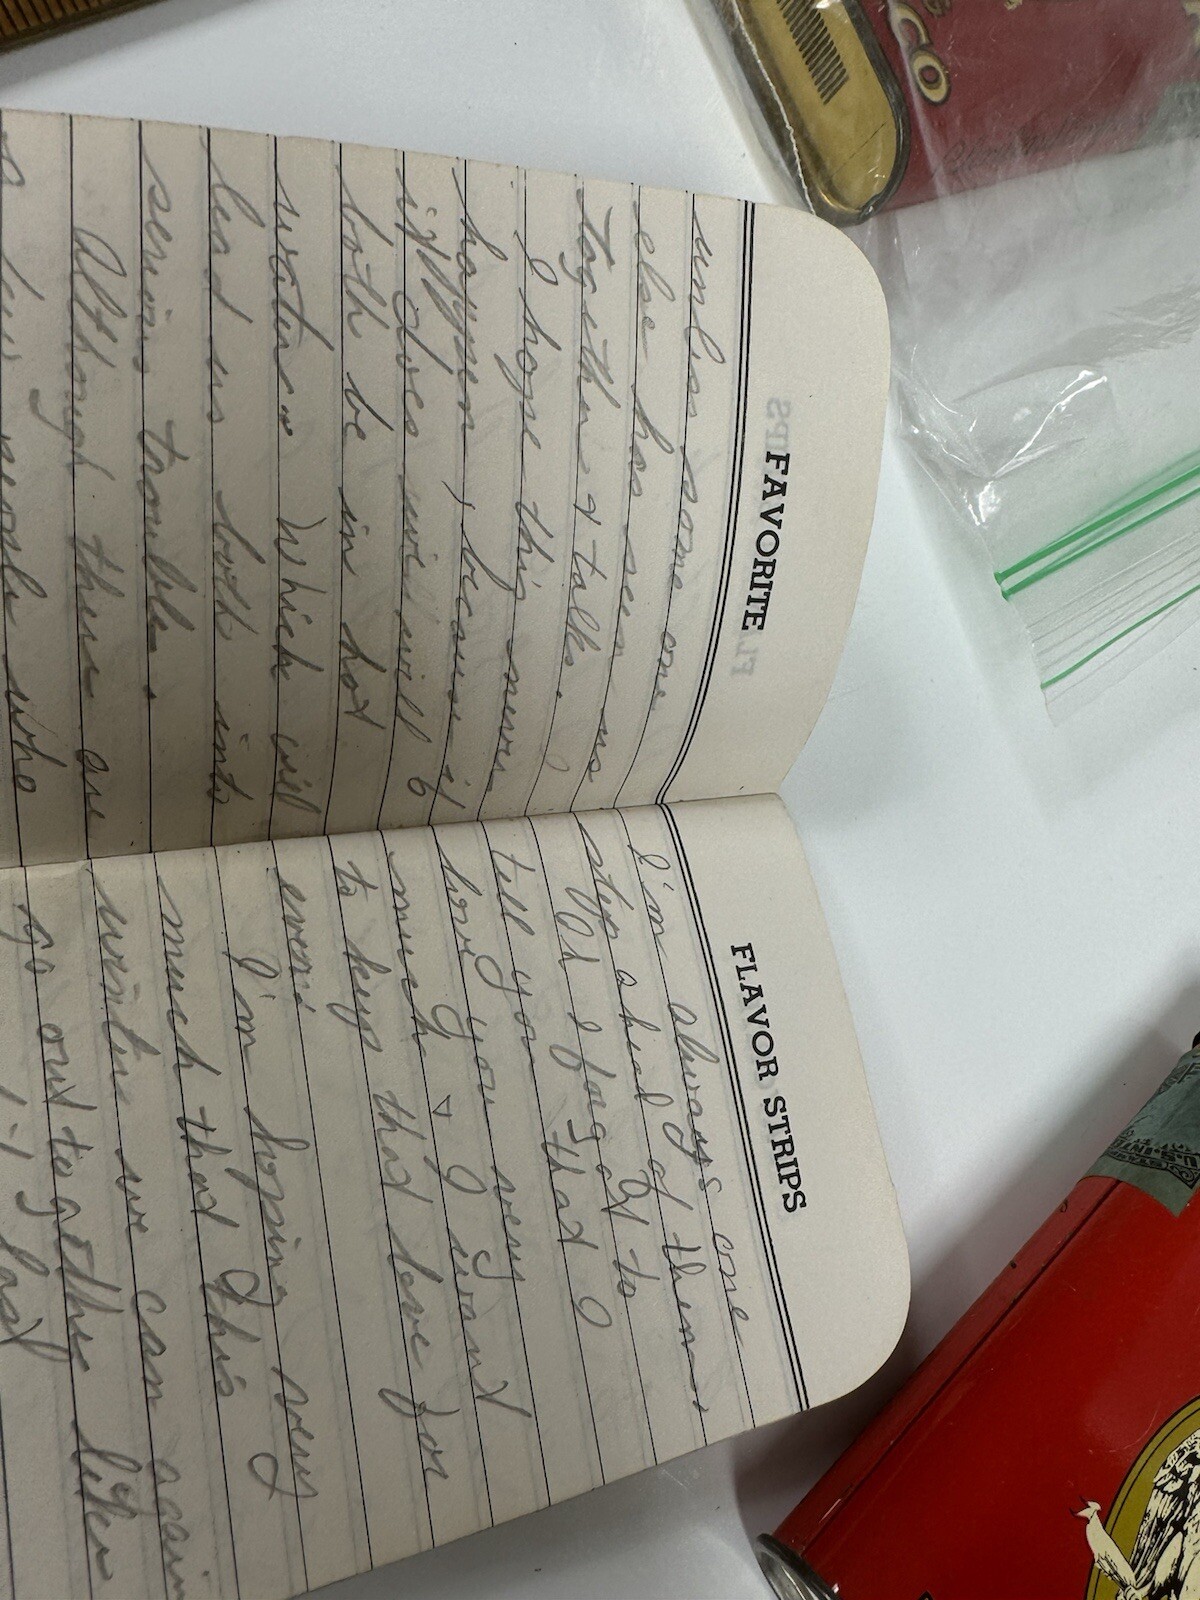 FAVORITE
unless some one
else has seen us
together & talks.
I hope this never
happen, because if
it does we will b
both be in hot
water. Which will
lead us both into
serious trouble.
Although there are
people who
FLAVOR STRIPS
I'm always one
step ahead of them
Oh I forgot to
tell you that I
love you very
much & I want
to keep that love for
ever.
I'm hoping very
much that this
winter we can again
go out together like
had
CO